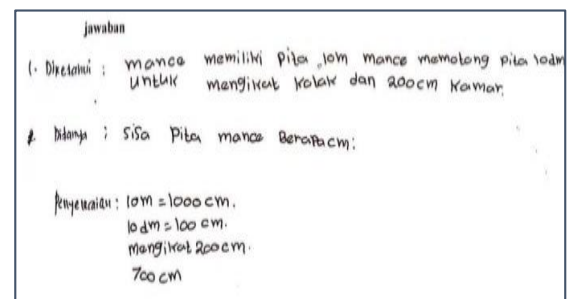 jawaban
1. Diketahui : mance memiliki pita 10m mance memotong pita 10dm
untuk mengikat kolak dan 200cm kamar.
2. Ditanya : sisa pita mance Berapa cm:
Penyelesaian : 10m = 1000 cm.
10 dm = 100 cm.
mengikat 200 cm.
700 cm